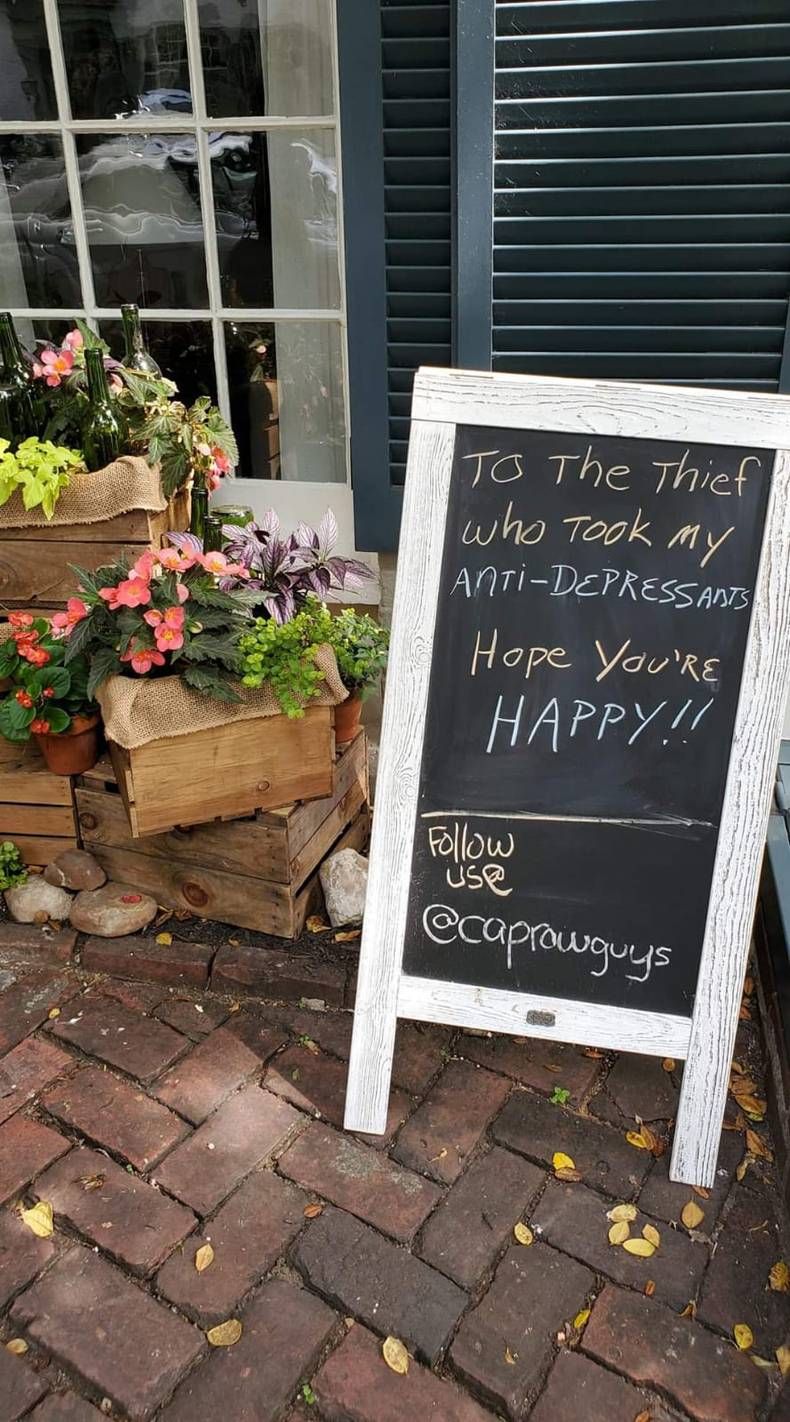 To The Thief
who Took My
ANTI-DEPRESSANTS
Hope You'RE
HAPPY!!
Follow
us@
@caprowguys